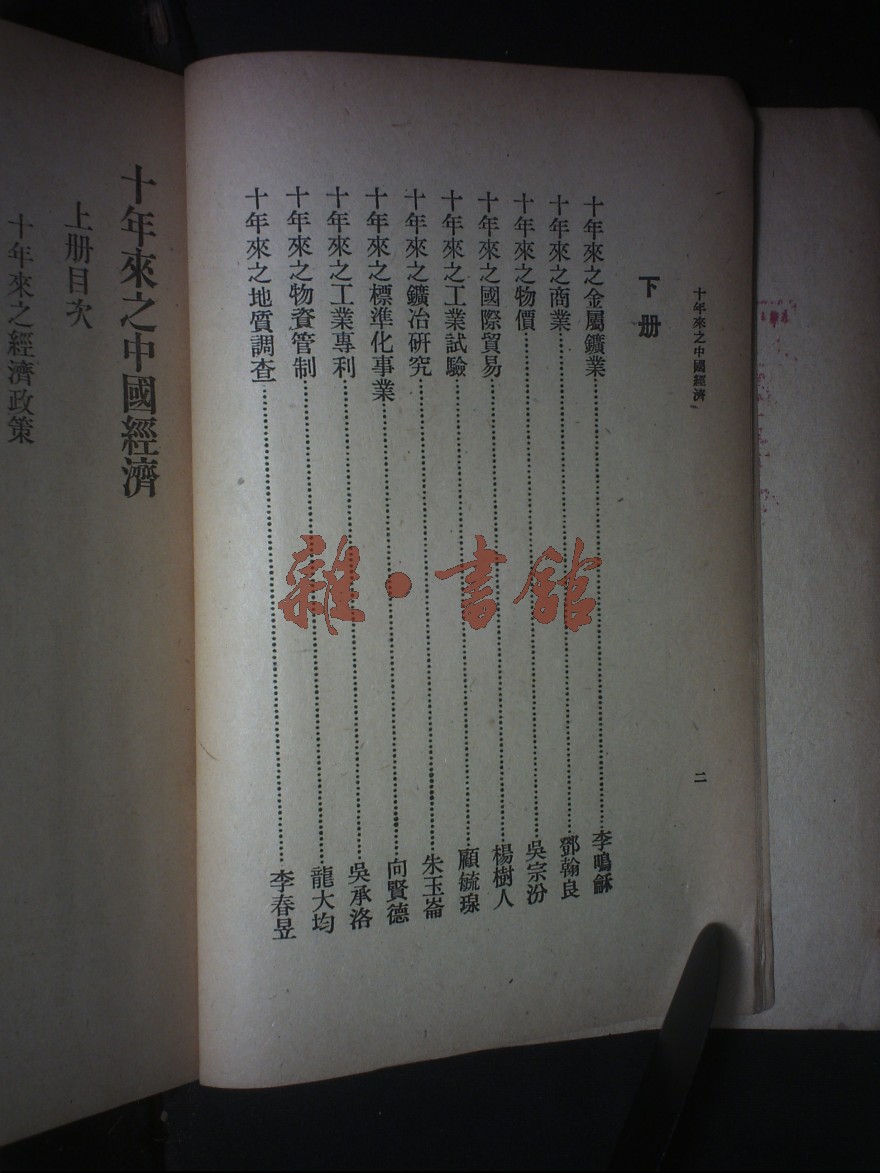 十年來之中國經濟
二
下册
十年來之金屬鑛業……李鳴龢
十年來之商業……鄧翰良
十年來之物價……吳宗汾
十年來之國際貿易……楊樹人
十年來之工業試驗……顧毓瑔
十年來之鑛冶研究……朱玉崙
十年來之標準化事業……向賢德
十年來之工業專利……吳承洛
十年來之物資管制……龍大均
十年來之地質調查……李春昱
十年來之中國經濟
上册目次
十年來之經濟政策
雜·書館